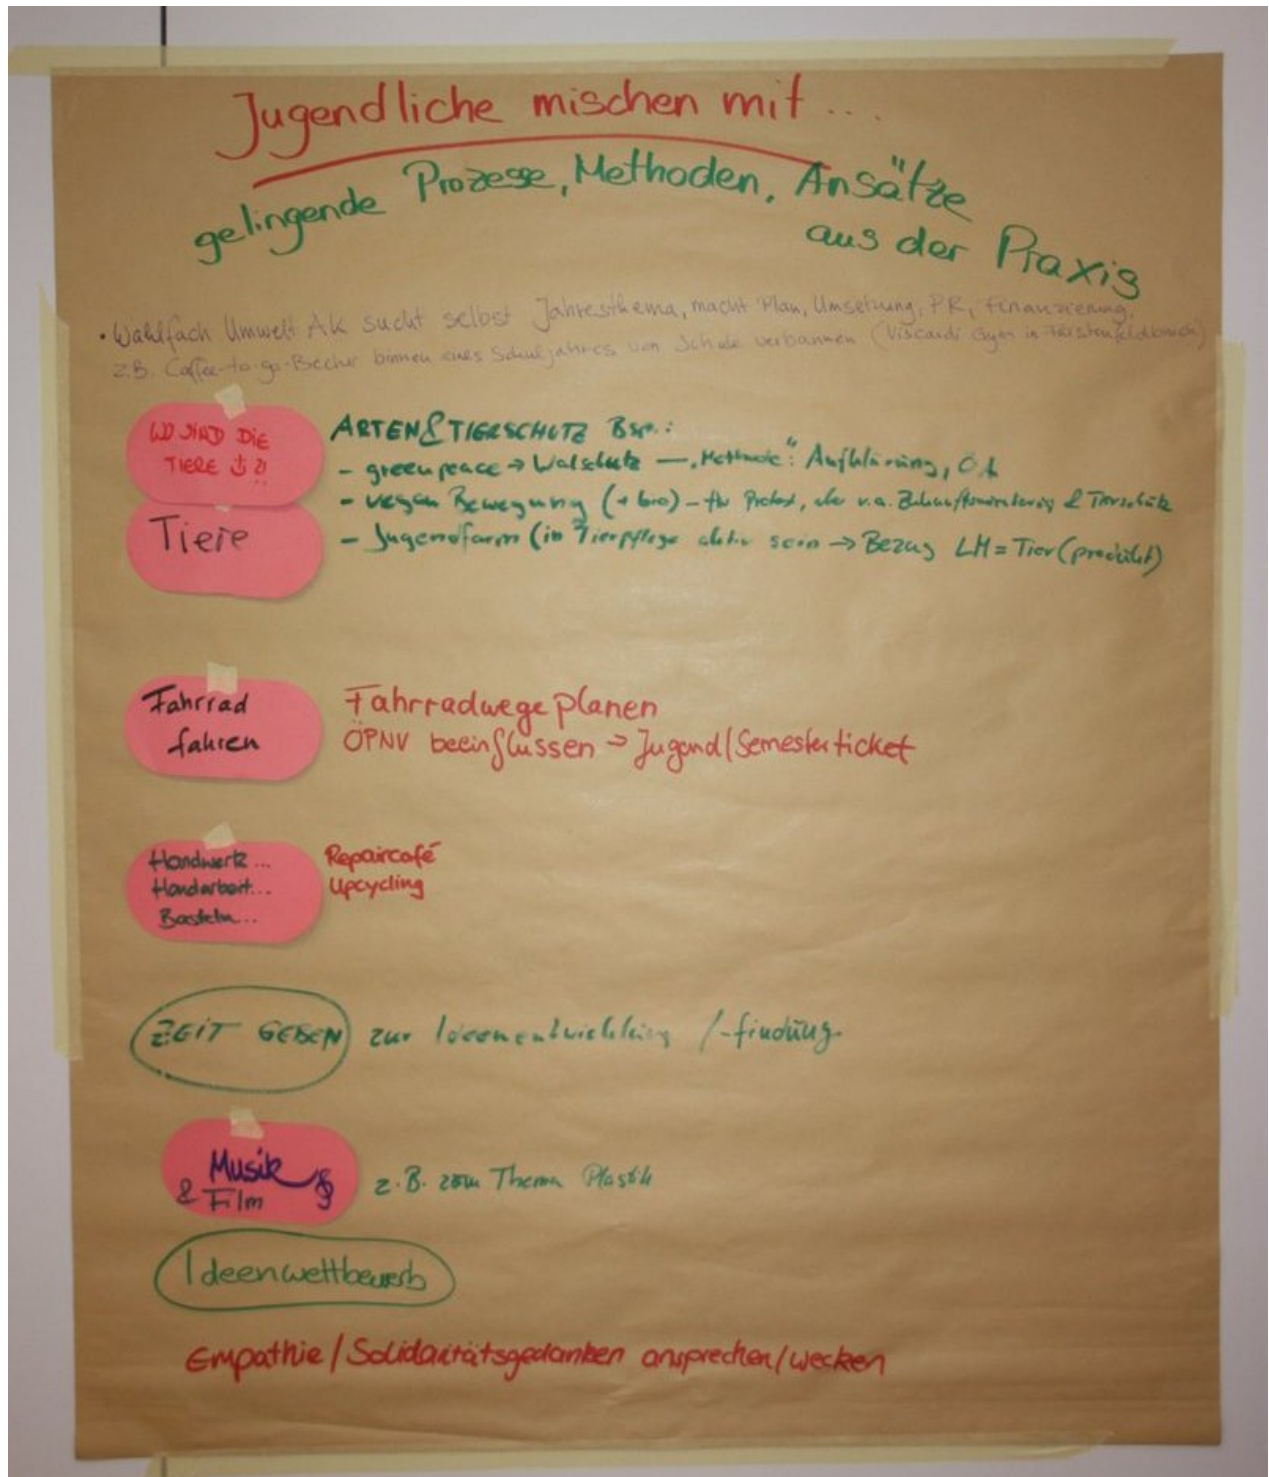 Jugendliche mischen mit...
gelingende Prozesse, Methoden, Ansätze
aus der Praxis
• Wahlfach Umwelt AK sucht selbst Jahresthema, macht Plan, Umsetzung, PR, Finanzierung,
z.B. Coffee-to-go-Becher binnen eines Schuljahres von Schule verbannen (Viscardi Gym in Fürstenfeldbruck)
WO SIND DIE
TIERE
Tiere
ARTEN & TIERSCHUTZ Bsp.:
- greenpeace → Walschutz — "Methode": Aufklärung, ÖA
- vegan Bewegung (+ bio) - Protest, aber v.a. & Tierschutz
- Jugendfarm (in Tierpflege aktiv sein → Bezug LM = Tier(produkt)
Fahrrad
fahren
Fahrradwege planen
ÖPNV beeinflussen → Jugend/Semesterticket
Handwerk...
Handarbeit...
Basteln...
Repaircafé
Upcycling
ZEIT GEBEN zur Ideenentwicklung /-findung.
Musik
& Film
z.B. zum Thema Plastik
Ideenwettbewerb
Empathie/Solidaritätsgedanken ansprechen/wecken